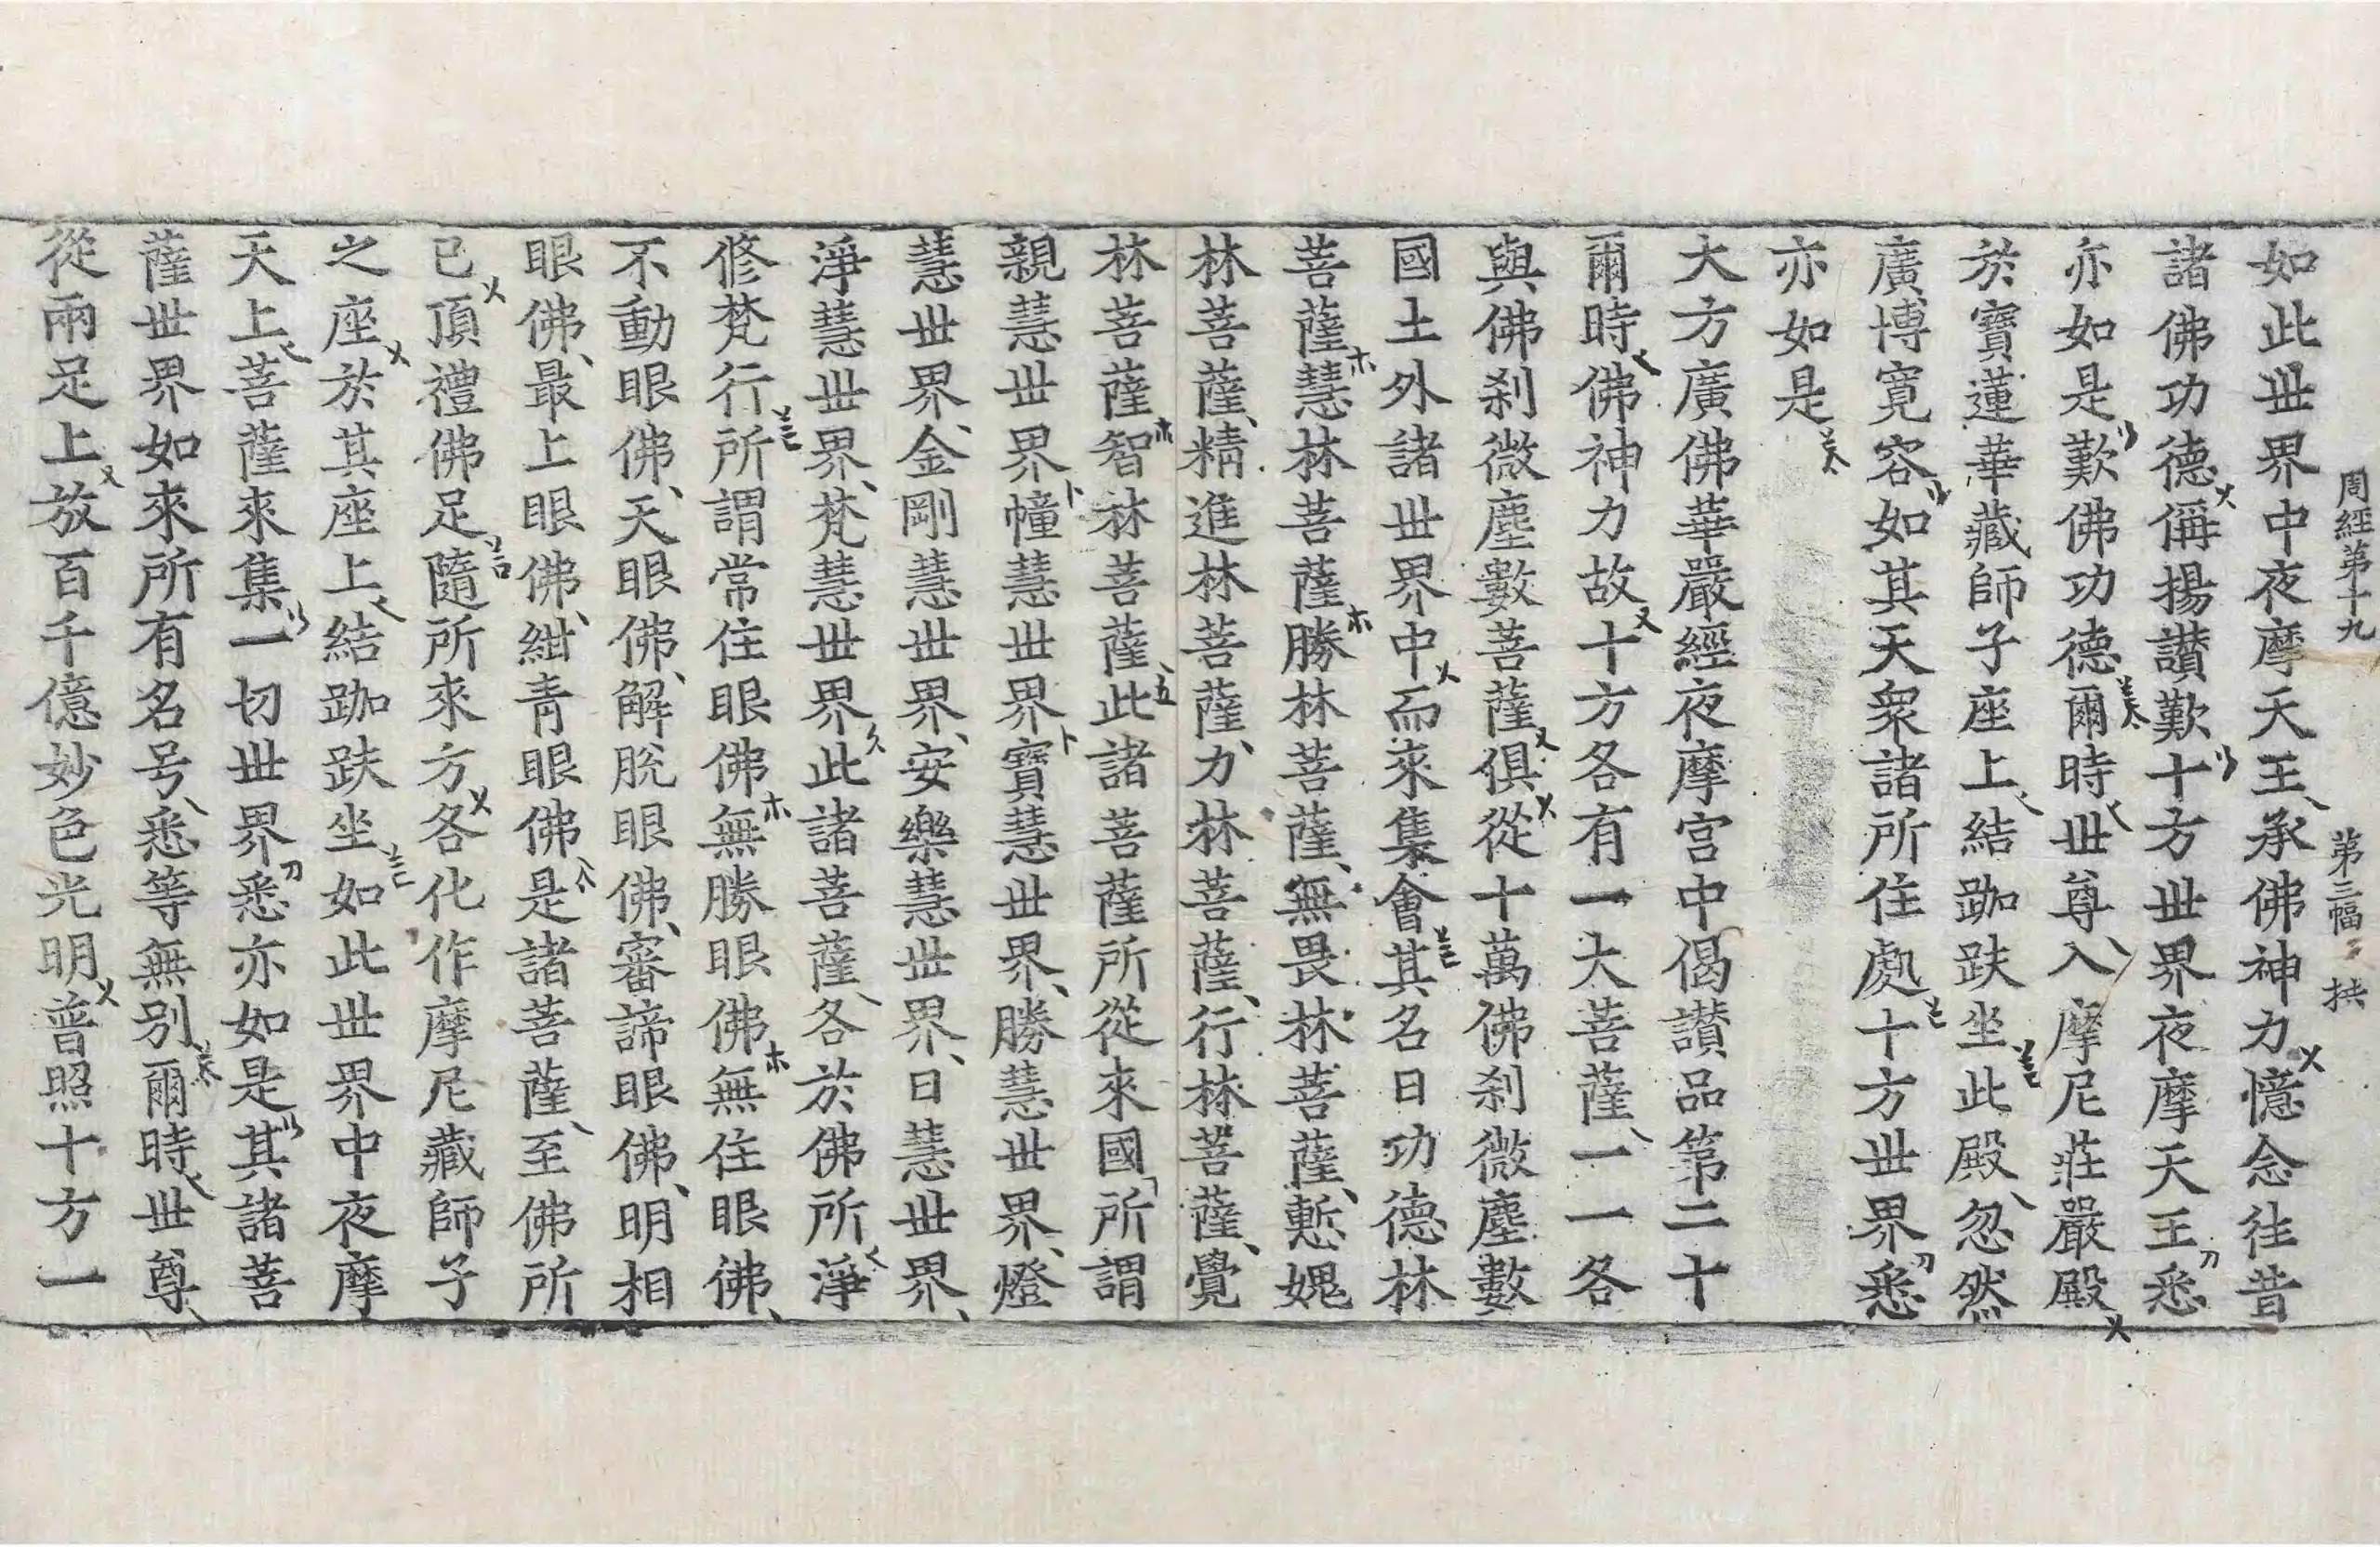 周經第十九 第三幅 拱
如此世界中夜摩天王承佛神力憶念往昔
諸佛功德稱揚讃歎十方世界夜摩天王悉
亦如是歎佛功德爾時世尊入摩尼莊嚴殿
於寶蓮華藏師子座上結跏趺坐此殿忽然
廣博寬容如其天衆諸所住處十方世界悉
亦如是
大方廣佛華嚴經夜摩宮中偈讃品第二十
爾時佛神力故十方各有一大菩薩一一各
與佛刹微塵數菩薩俱從十萬佛刹微塵數
國土外諸世界中而來集會其名曰功德林
菩薩慧林菩薩勝林菩薩無畏林菩薩慙媿
林菩薩精進林菩薩力林菩薩行林菩薩覺
林菩薩智林菩薩此諸菩薩所從來國所謂
親慧世界幢慧世界寶慧世界勝慧世界燈
慧世界金剛慧世界安樂慧世界日慧世界
淨慧世界梵慧世界此諸菩薩各於佛所淨
修梵行所謂常住眼佛無勝眼佛無住眼佛
不動眼佛天眼佛解脫眼佛審諦眼佛明相
眼佛最上眼佛紺青眼佛是諸菩薩至佛所
已頂禮佛足隨所來方各化作摩尼藏師子
之座於其座上結跏趺坐如此世界中夜摩
天上菩薩來集一切世界悉亦如是其諸菩
薩世界如來所有名号悉等無別爾時世尊
從兩足上放百千億妙色光明普照十方一